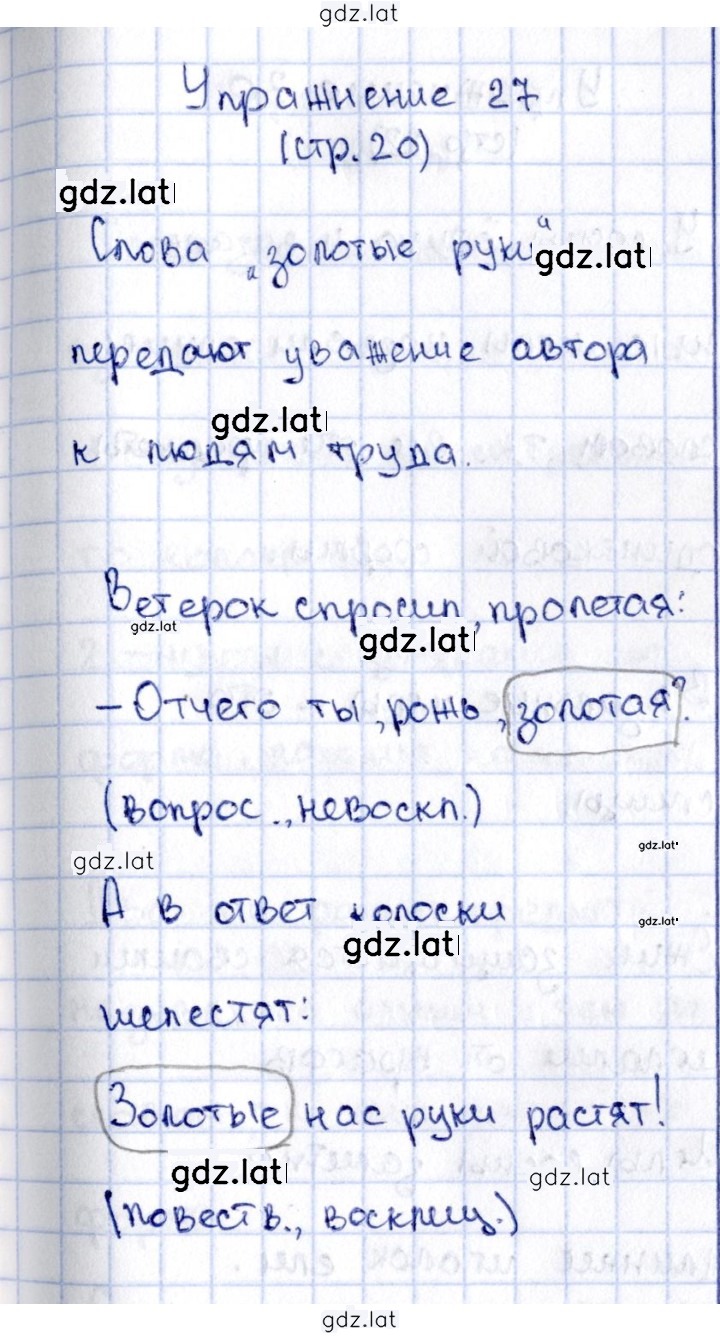 gdz.lat
Упражнение 27
(стр. 20)
gdz.lat
Слова „золотые руки“
gdz.lat
передают уважение автора
gdz.lat
к людям труда.
Ветерок спросил, пролетая:
gdz.lat
gdz.lat
– Отчего ты, рожь, золотая?
(вопрос., невоскл.)
gdz.lat
gdz.lat
А в ответ колоски
gdz.lat
gdz.lat
шелестят:
Золотые нас руки растят!
gdz.lat
gdz.lat
(повеств., восклиц.)
gdz.lat